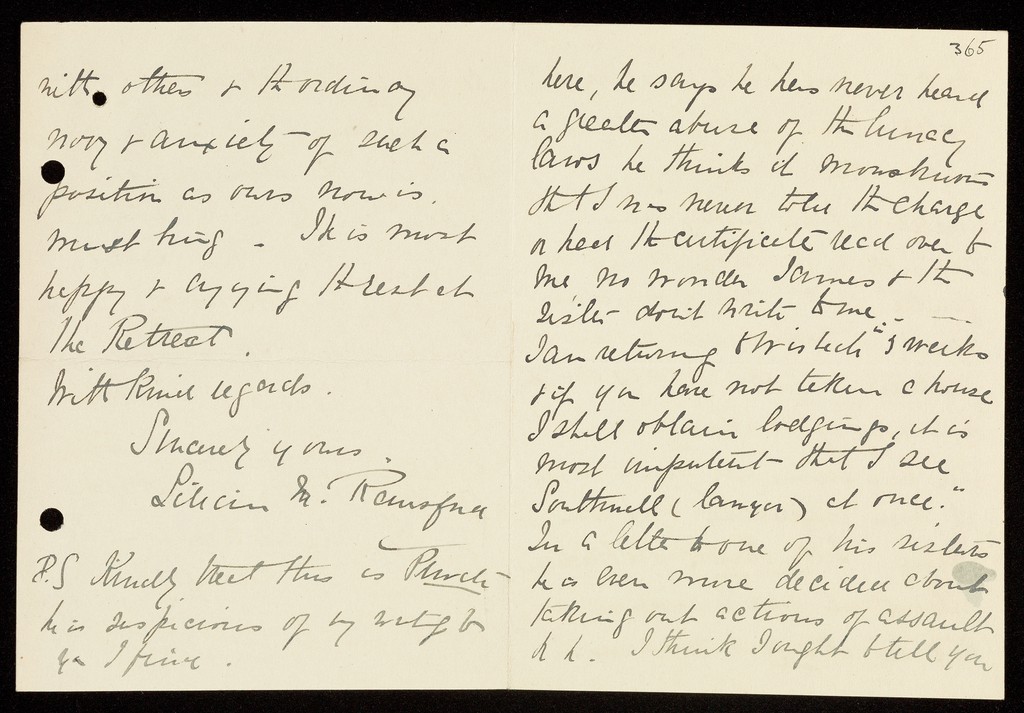 with others & the ordinary
worry & anxiety of such a
position as ours now is,
must bring. He is most
happy & enjoying the rest at
The Retreat.
With kind regards.
Sincerely yours.
Lilian M. Ransford
P.S Kindly treat this as Private
he is suspicious of my writing to
you I find.
365
here, he says he has never heard
a greater abuse of the lunacy
laws he thinks it monstrous
that I was never told the charge
or heard the certificate read over to
me no wonder James & the
sister don't write to me. –
I am returning to "3 weeks
& if you have not taken a house
I shall obtain lodgings, it is
most important that I see
Southwell (lawyer) at once."
In a letter to one of his sisters
he is even more decided about
taking out actions of assault
I think I ought to tell you